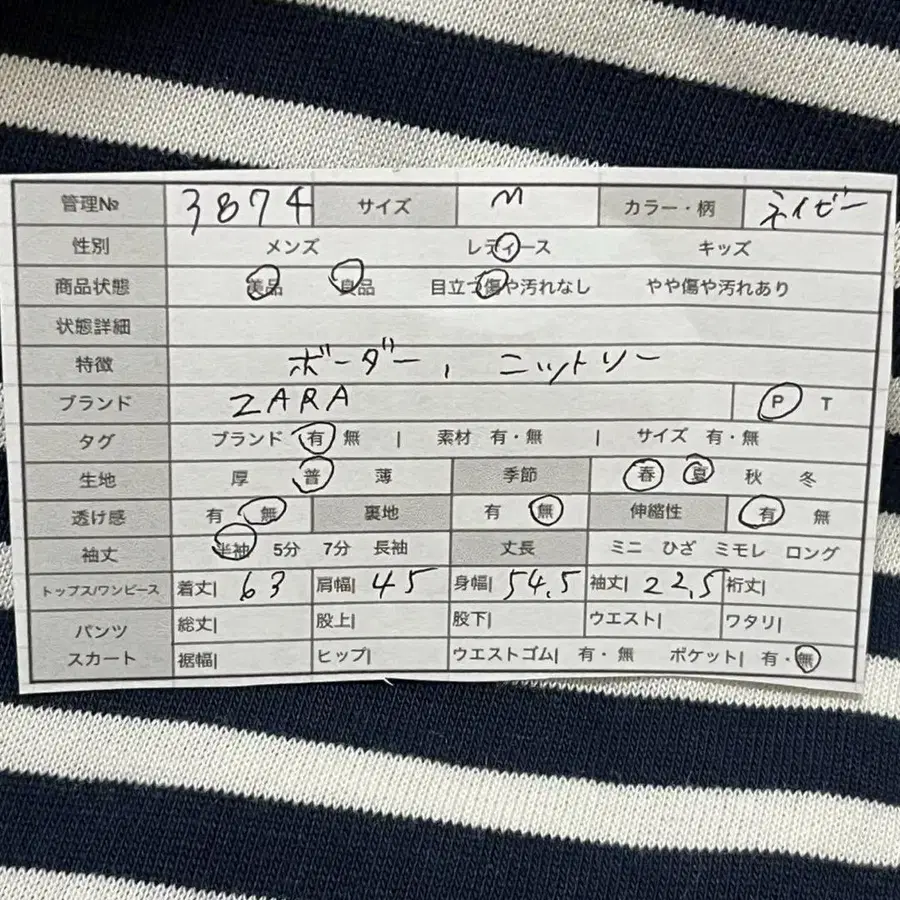 管理№ 3874 サイズ M カラー・柄 ネイビー
性別 メンズ レディース キッズ
商品状態 美品 良品 目立つ傷や汚れなし やや傷や汚れあり
状態詳細
特徴 ボーダー, ニットソー
ブランド ZARA P T
タグ ブランド 有 無 | 素材 有・無 | サイズ 有・無
生地 厚 普 薄 季節 春 夏 秋 冬
透け感 有 無 裏地 有 無 伸縮性 有 無
袖丈 半袖 5分 7分 長袖 丈長 ミニ ひざ ミモレ ロング
トップス/ワンピース 着丈| 63 肩幅| 45 身幅| 54.5 袖丈| 22.5 裄丈|
パンツ 総丈| 股上| 股下| ウエスト| ワタリ|
スカート 裾幅| ヒップ| ウエストゴム| 有・無 ポケット| 有・無